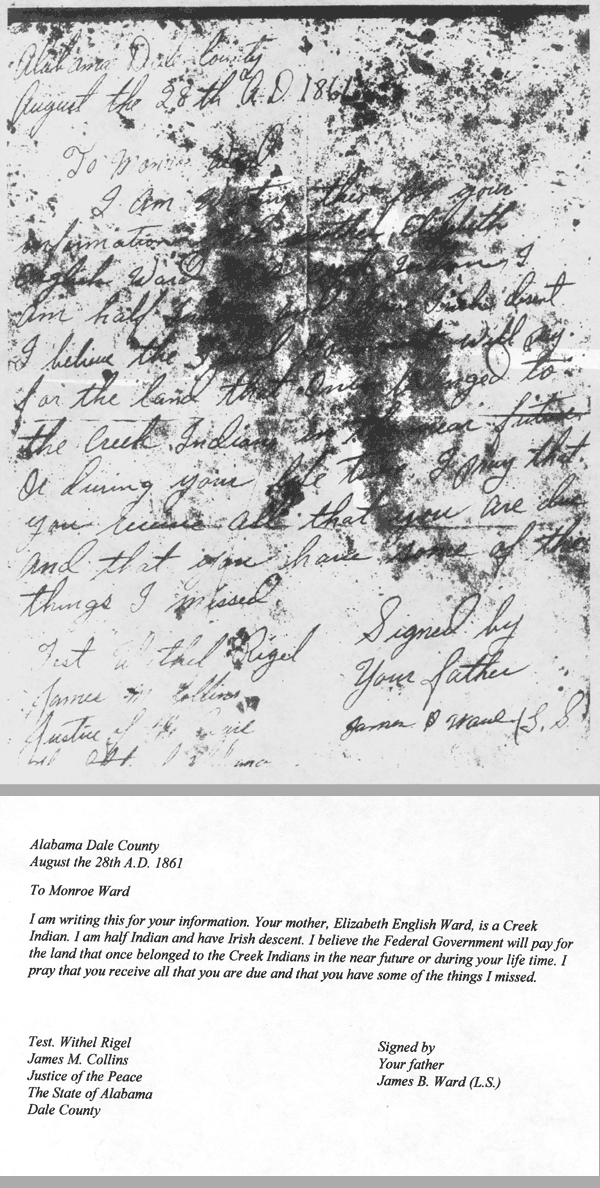 Alabama Dale County
August the 28th A.D. 1861
To Monroe Ward
I am writing this for your
information mother Elizabeth
English Ward Indian I
am half Irish decent
I believe the will pay
for the land that once belonged to
the Creek Indians in the near future
Or during your life time I pray that
you receive all that you are due
and that you have some of the
things I missed
Signed by
Your father
James B Ward (L. S.
Test Withel Rigel
James M Collins
Justice of the
Alabama Dale County
August the 28th A.D. 1861
To Monroe Ward
I am writing this for your information. Your mother, Elizabeth English Ward, is a Creek
Indian. I am half Indian and have Irish descent. I believe the Federal Government will pay for
the land that once belonged to the Creek Indians in the near future or during your life time. I
pray that you receive all that you are due and that you have some of the things I missed.
Test. Withel Rigel
James M. Collins
Justice of the Peace
The State of Alabama
Dale County
Signed by
Your father
James B. Ward (L.S.)